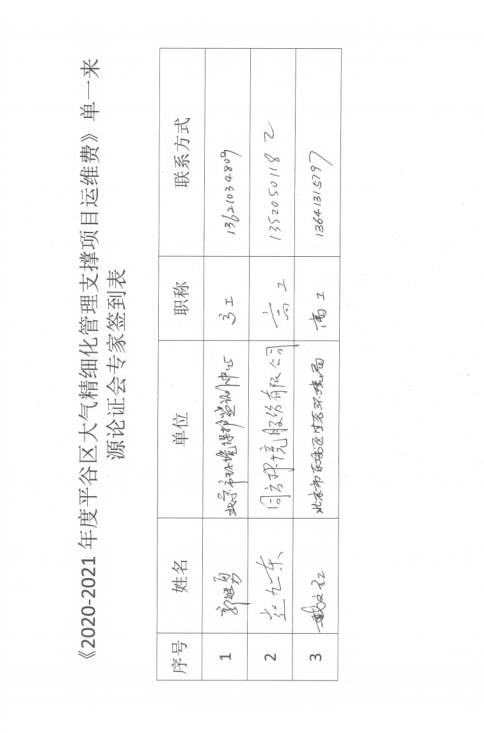 《2020-2021 年度平谷区大气精细化管理支撑项目运维费》单一来
源论证会专家签到表
序号 姓名 单位 职称 联系方式
1 郭 勇 北京市环境保护监测中心 高工 13621034809
2 赵 东 同方环境股份有限公司 高工 13520501182
3 北京市 区生态环境局 高工 13641315797